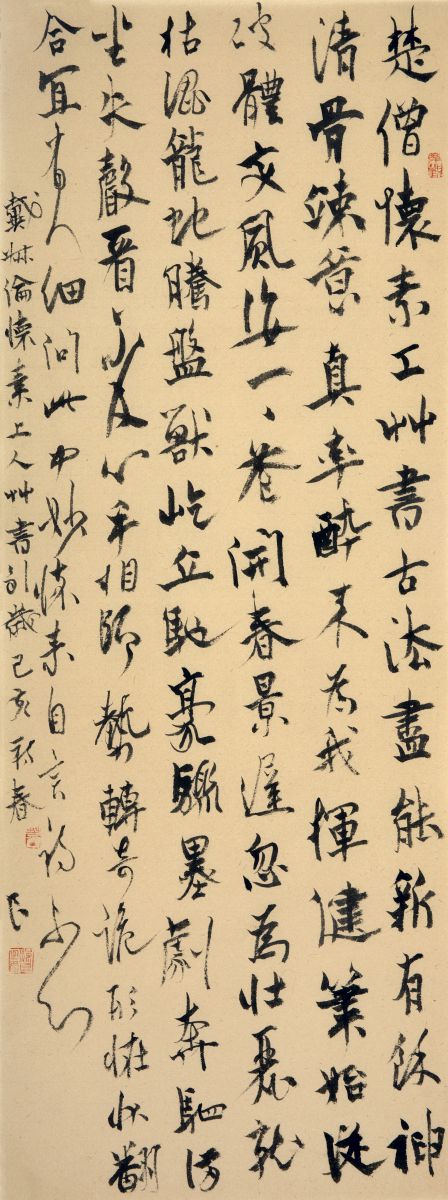 楚僧懷素工艸書古法盡能新有餘神
清骨竦意真率醉来為我揮健筆始從
破體變風姿一一花開春景遲忽為壯麗就
枯澀龍虵騰盤獸屹立馳豪驟墨劇奔駟滿
坐失聲看不及心手相師勢轉奇詭形怪狀翻
合宜有人細問此中妙懷素自言初不知
戴叔倫懷素上人艸書歲己亥新春